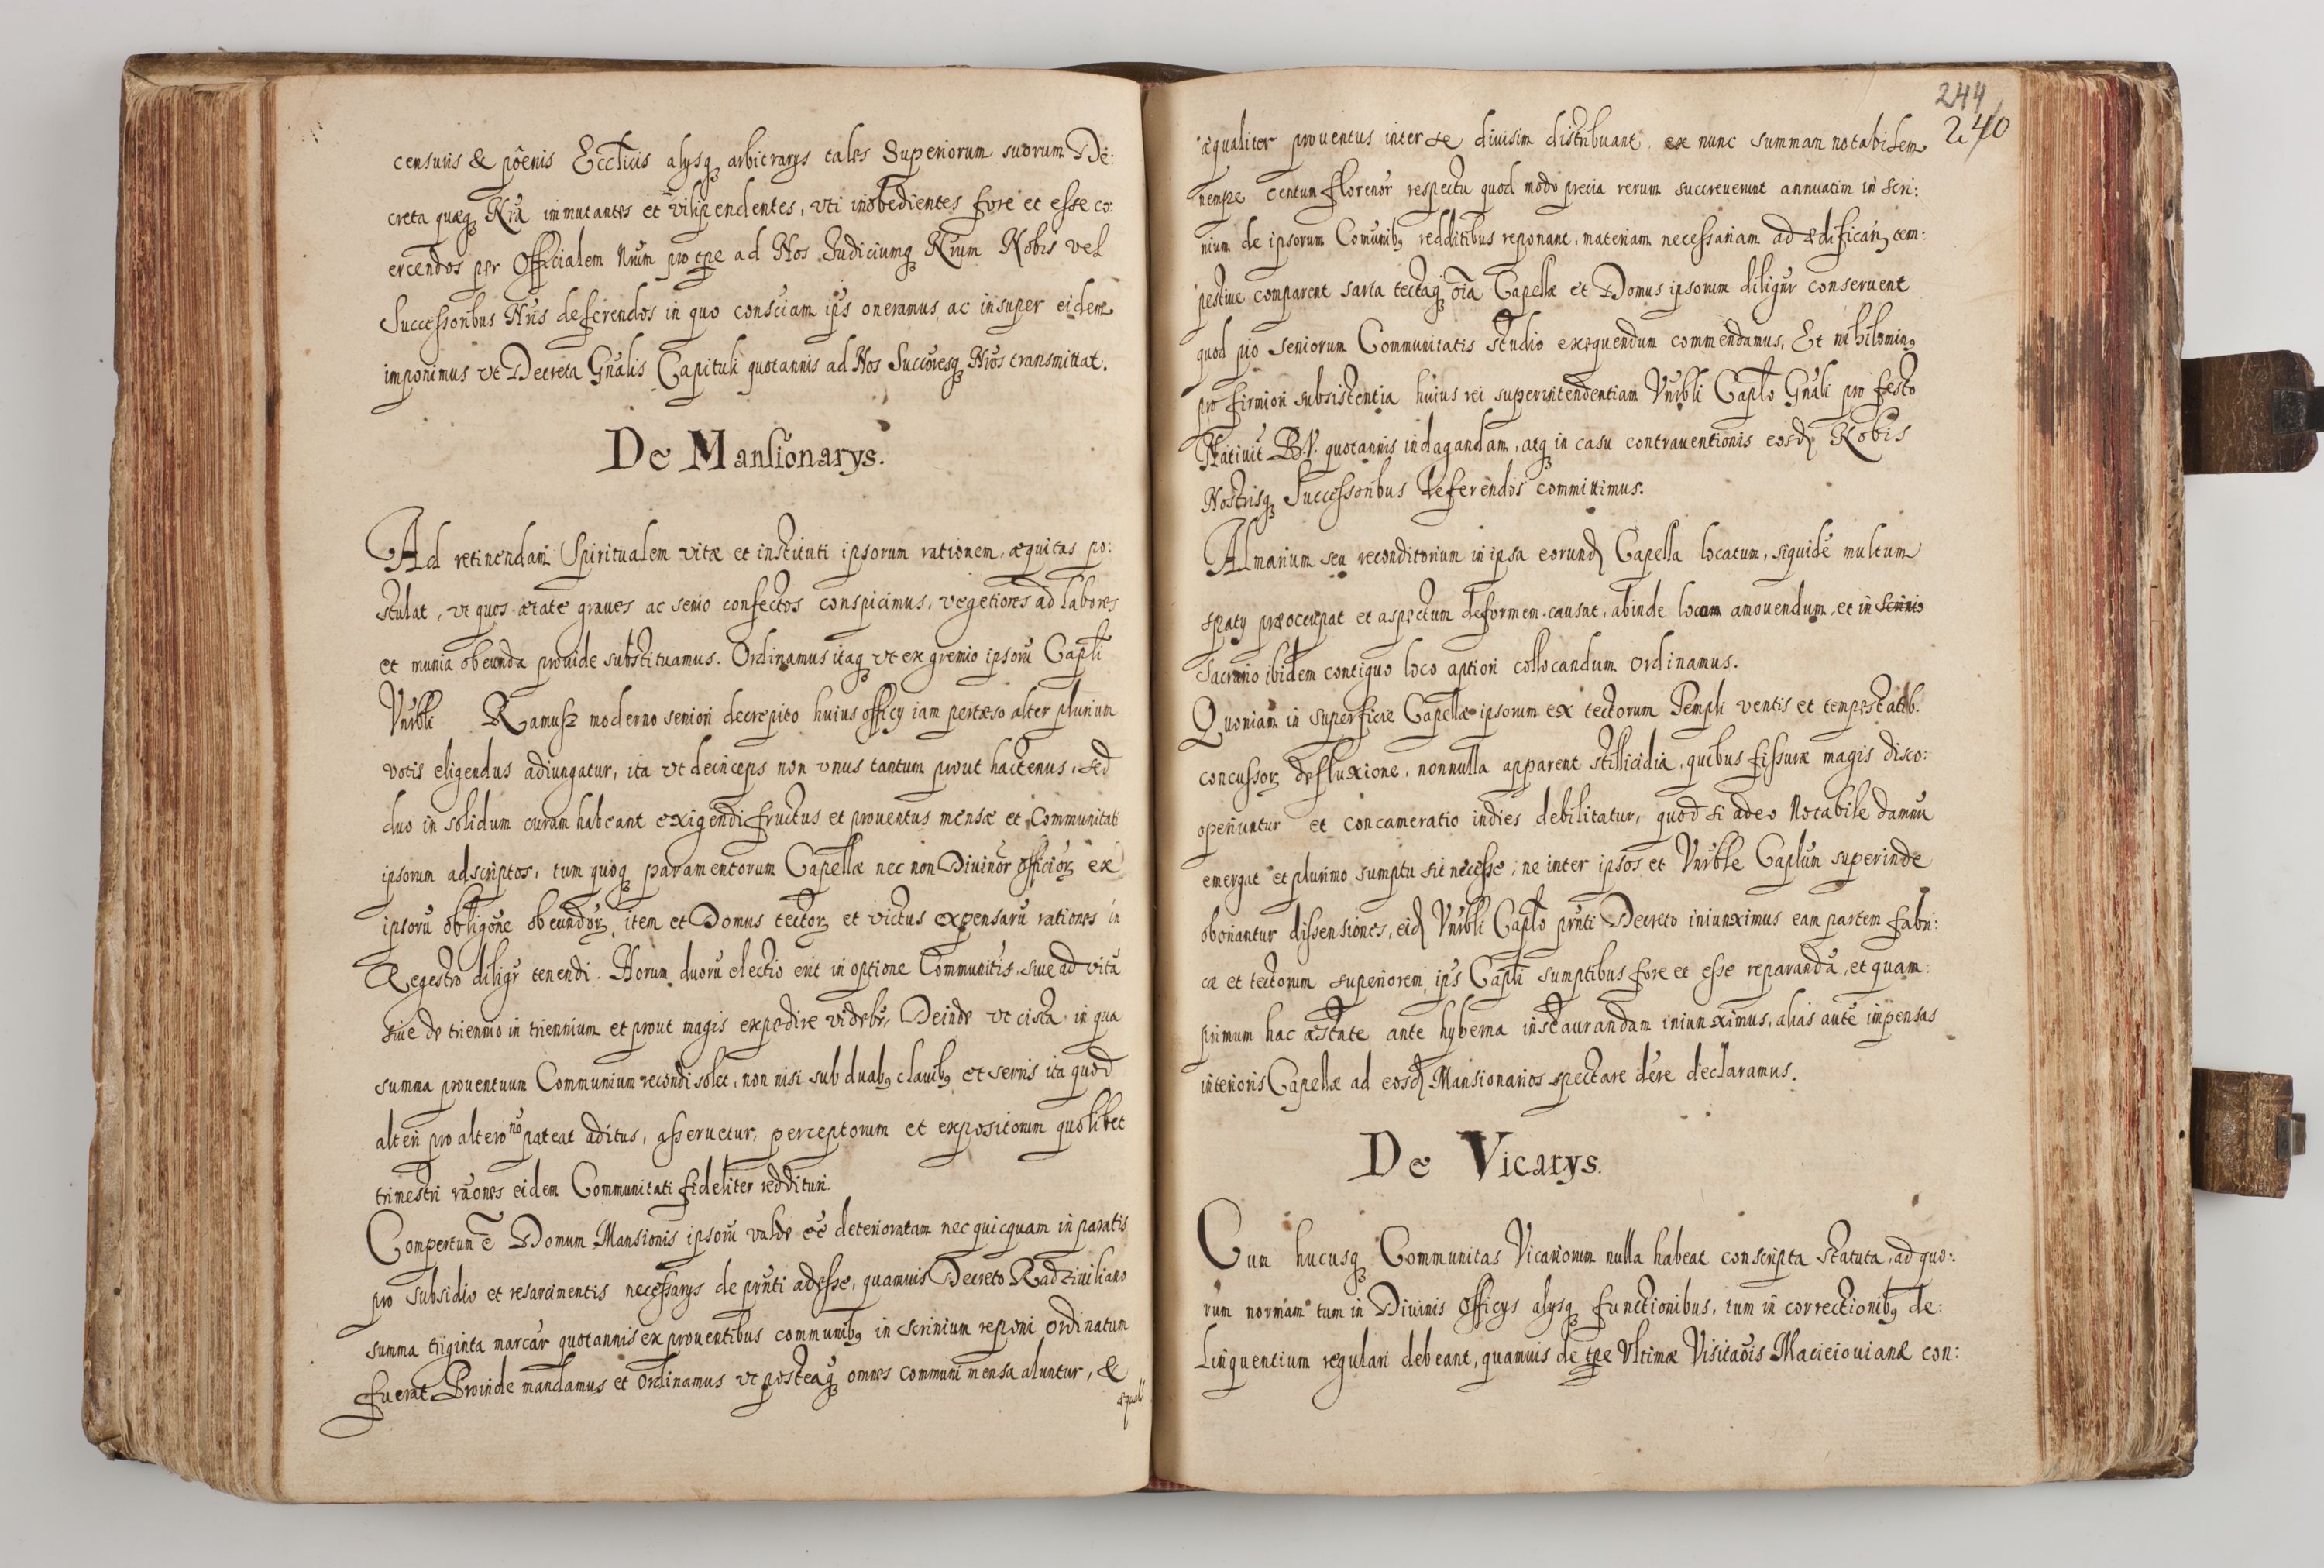 censuris & pôenis Eccl̃icis alysqꝫ arbitrarys tales Superiorum suorum De:
creta quæqꝫ Nr̃a immutantes et vilipendentes, vti inobedientes fore et esse co:
ercendos per Officialem Nr̃um pro tp̃e ad Nos Iudiciumqꝫ Nr̃um Nobis vel
Successoribus Nr̃is deferendos in quo consciam ip̃s oneramus ac insuper eidem
imponimus vt Decreta Gñalis Capituli quotannis ad Nos Succoresqꝫ Nr̃os transmittat.
De Mansionarys.
Ad retinendam Spiritualem vitæ et instituti ipsorum rationem, æquitas po:
stulat, vt quos ætate graues ac senio confectos conspicimus, vegetiores ad labores
et munia obeunda prouide substituamus. Ordinamus itaqꝫ vt ex gremio ipsorũ Capl̃i
Vnr̃bli Ramusz moderno seniori decrepito huius officy iam pertæso alter plurium
votis eligendus adiungatur, ita vt deinceps non vnus tantum prout hactenus, sed
duo in solidum curam habeant exigendi fructus et prouentus mensæ et Communitati
ipsorum adscriptos, tum quoqꝫ paramentorum Capellæ nec non Diuinor̃ officiorꝫ ex
ipsorũ obligõne obeundorꝫ, item et Domus tectorꝫ et victus expensarũ rationes in
Regestro diligr̃ tenendi. Horum duorũ electio erit in optione Communitis, siue ad vitã
siue de triennio in triennium et prout magis expedire videbr̃, Deinde vt cista in qua
summa prouentuum Communium recondi solet, non nisi sub duabꝫ clauibꝫ et serris ita quod
alteri pro altero nõ pateat aditus, asseruetur, perceptorum et expositorum quolibet
trimestri rãones eidem Communitati fideliter reddituri.
Compertum ẽ Domum Mansionis ipsorũ valde eẽ deterioratam nec quicquam in paratis
pro subsidio et resarcimentis necessarys de pr̃nti adesse, quamuis Decreto Radziuiliano
summa triginta marcar̃ quotannis ex prouentibus communibꝫ in scrinium reponi ordinatum
fuerat. Proinde mandamus et ordinamus vt posteaqꝫ omnes communi mensa aluntur, &
æquali
244
240
æqualiter prouentus inter se diuisim distribuant, ex nunc summam notabilem
nempe centum florenor̃ respectu quod modo precia rerum succreuerunt annuatim in scri:
nium de ipsorum Comunibꝫ redditibus reponant, materiam necessariam ad ædificanꝫ tem:
pestiue comparent sarta tectaqꝫ oĩa Capellæ et Domus ipsorum diligr̃ conseruent
quod pio seniorum Communitatis studio exequendum commendamus, Et nihilominꝫ
pro firmiori subsistentia huius rei superintendentiam Vnr̃bli Capl̃o Gñali pro festo
Natiuit̃ B.V. quotannis indagandam, atqꝫ in casu contrauentionis eosdꝫ Nobis
Nostrisqꝫ Successoribus Referendos committimus.
Almarium seu reconditorium in ipsa eorundꝫ Capella locatum, siquidẽ multum
spaty præoccupat et aspectum deformem causat, abinde locum amouendum et in scrinio
Sacrario ibidem contiguo loco aptiori collocandum ordinamus.
Quoniam in superficie Capellæ ipsorum ex tectorum Templi ventis et tempestatib.
concussorꝫ defluxione, nonnulla apparent stillicidia, quibus fissuræ magis disco:
operiuntur et concameratio indies debilitatur, quod si adeo Notabile damnũ
emergat et plurimo sumptu sit necesse, ne inter ipsos et Vnr̃ble Caplũm superinde
oboriantur dissensiones, eidꝫ Vnr̃bli Capl̃o pr̃nti Decreto iniunximus eam partem fabri:
cæ et tectorum superiorem, ip̃s Capl̃i sumptibus fore et esse reparandã, et quam:
primum hac æstate ante hyberna instaurandam iniunximus, alias autẽ impensas
interioris Capellæ ad eosdꝫ Mansionarios spectare d̃ere declaramus.
De Vicarys.
Cum hucusqꝫ Communitas Vicariorum nulla habeat conscripta statuta, ad quo:
rum normam tum in Diuinis Officys alysqꝫ functionibus, tum in correctionibꝫ de:
linquentium regulari debeant, quamuis de tp̃e Vltimæ Visitaõis Macieiouianæ con: